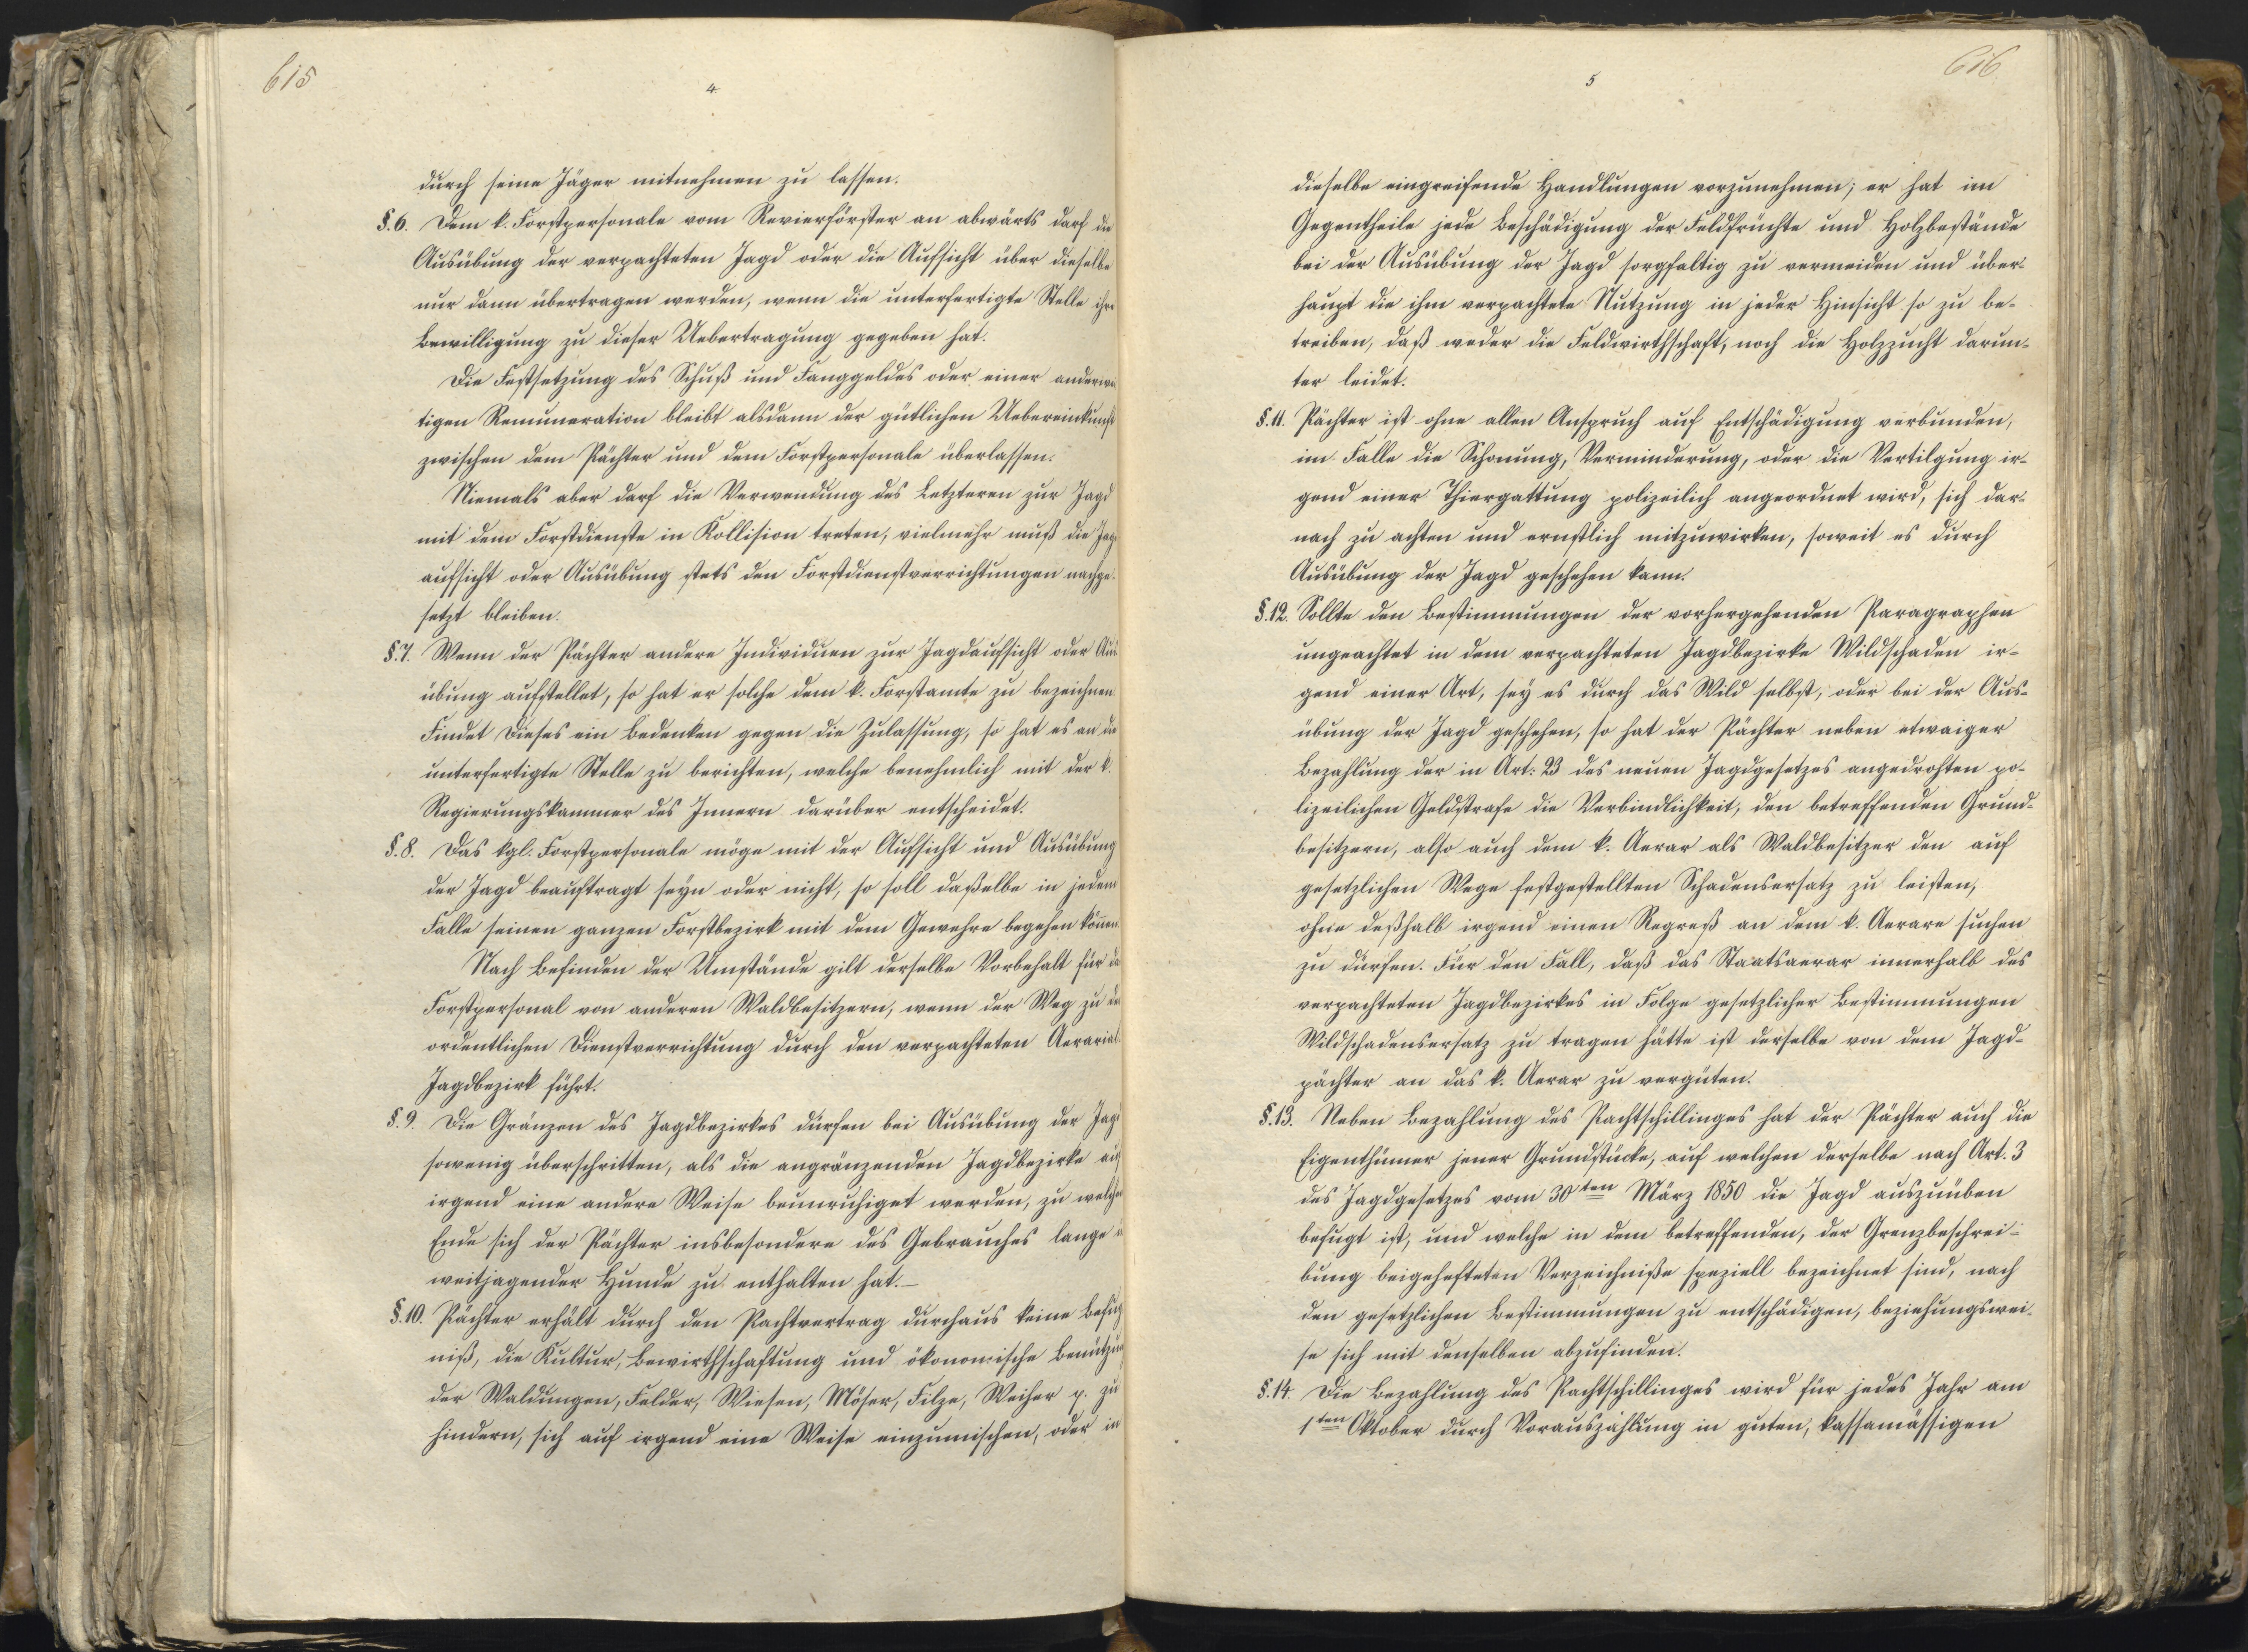 615
4.
durch seine Jäger mitnehmen zu lassen.
§.6. Dem k. Forstpersonale vom Revierförster an abwärts darf die
Ausübung der verpachteten Jagd oder die Aufsicht über dieselbe
nur dann übertragen werden, wenn die unterfertigte Stelle ihre
Bewilligung zu dieser Uebertragung gegeben hat.
Die Festsetzung des Schuß und Fanggeldes oder einer anderwei
tigen Remuneration bleibt alsdann der gütlichen Uebereinkunft
zwischen dem Pächter und dem Forstpersonale überlassen.
Niemals aber darf die Verwendung des Letzteren zur Jagd
mit dem Forstdienste in Kollision treten, vielmehr muß die Jagd
aufsicht oder Ausübung stets den Forstdienstverrichtungen nachge-
setzt bleiben.
§.7. Wenn der Pächter andere Individuen zur Jagdaufsicht oder Aus
übung aufstellet, so hat er solche dem k. Forstamte zu bezeichnen.
Findet Dieses ein Bedenken gegen die Zulassung, so hat es an die
unterfertigte Stelle zu berichten, welche benehmlich mit der k.
Regierungskammer des Innern darüber entscheidet.
§.8. Das kgl. Forstpersonale möge mit der Aufsicht und Ausübung
der Jagd beauftragt seyn oder nicht, so soll daßelbe in jedem
Falle seinen ganzen Forstbezirk mit dem Gewehre begehen können
Nach Befinden der Umstände gilt derselbe Vorbehalt für das
Forstpersonal von anderen Waldbesitzern, wenn der Weg zu der
ordentlichen Dienstverrichtung durch den verpachteten Aerarial-
Jagdbezirk führt.
§.9. Die Gränzen des Jagdbezirkes dürfen bei Ausübung der Jagd
sowenig überschritten, als die angränzenden Jagdbezirke auf
irgend eine andere Weise beunruhiget werden, zu welchem
Ende sich der Pächter insbesondere des Gebrauches lange u
weitjagender Hunde zu enthalten hat.—
§.10. Pächter erhält durch den Pachtvertrag durchaus keine Befug
niß, die Kultur, Bewirthschaftung und ökonomische Benützung
der Waldungen, Felder, Wiesen, Möser, Filze, Weiher p. zu
hindern, sich auf irgend eine Weise einzumischen, oder in
616.
5
dieselbe eingreifende Handlungen vorzunehmen; er hat im
Gegentheile jede Beschädigung der Feldfrüchte und Holzbestände
bei der Ausübung der Jagd sorgfaltig zu vermeiden und über-
haupt die ihm verpachtete Nutzung in jeder Hinsicht so zu be-
treiben, daß weder die Feldwirthschaft, noch die Holzzucht darun-
ter leidet.
§.11. Pächter ist ohne allen Anspruch auf Entschädigung verbunden,
im Falle die Schonung, Verminderung, oder die Vertilgung ir-
gend einer Thiergattung polizeilich angeordnet wird, sich dar-
nach zu achten und ernstlich mitzuwirken, soweit es durch
Ausübung der Jagd geschehen kann.
§.12. Sollte den Bestimmungen der vorhergehenden Paragraphen
ungeachtet in dem verpachteten Jagdbezirke Wildschaden ir-
gend einer Art, sey es durch das Wild selbst, oder bei der Aus-
übung der Jagd geschehen, so hat der Pächter neben etwaiger
Bezahlung der in Art: 23 des neuen Jagdgesetzes angedrohten po-
lizeilichen Geldstrafe die Verbindlichkeit, den betreffenden Grund-
besitzern, also auch dem k. Aerar als Waldbesitzer den auf
gesetzlichen Wege festgestellten Schadensersatz zu leisten,
ohne deßhalb irgend einen Regreß an dem k. Aerare suchen
zu dürfen. Für den Fall, daß das Staatsaerar innerhalb des
verpachteten Jagdbezirkes in Folge gesetzlicher Bestimmungen
Wildschadensersatz zu tragen hätte ist derselbe von dem Jagd-
pächter an das k. Aerar zu vergüten.
§.13. Neben Bezahlung des Pachtschillinges hat der Pächter auch die
Eigenthümer jener Grundstücke, auf welchen derselbe nach Art. 3
des Jagdgesetzes vom 30ten März 1850 die Jagd auszuüben
befugt ist, und welche in dem betreffenden, der Grenzbeschrei-
bung beigehefteten Verzeichniße speziell bezeichnet sind, nach
den gesetzlichen Bestimmungen zu entschädigen, beziehungswei-
se sich mit denselben abzufinden.
§.14. Die Bezahlung des Pachtschillinges wird für jedes Jahr am
1ten Oktober durch Vorauszahlung in guten, kassamässigen